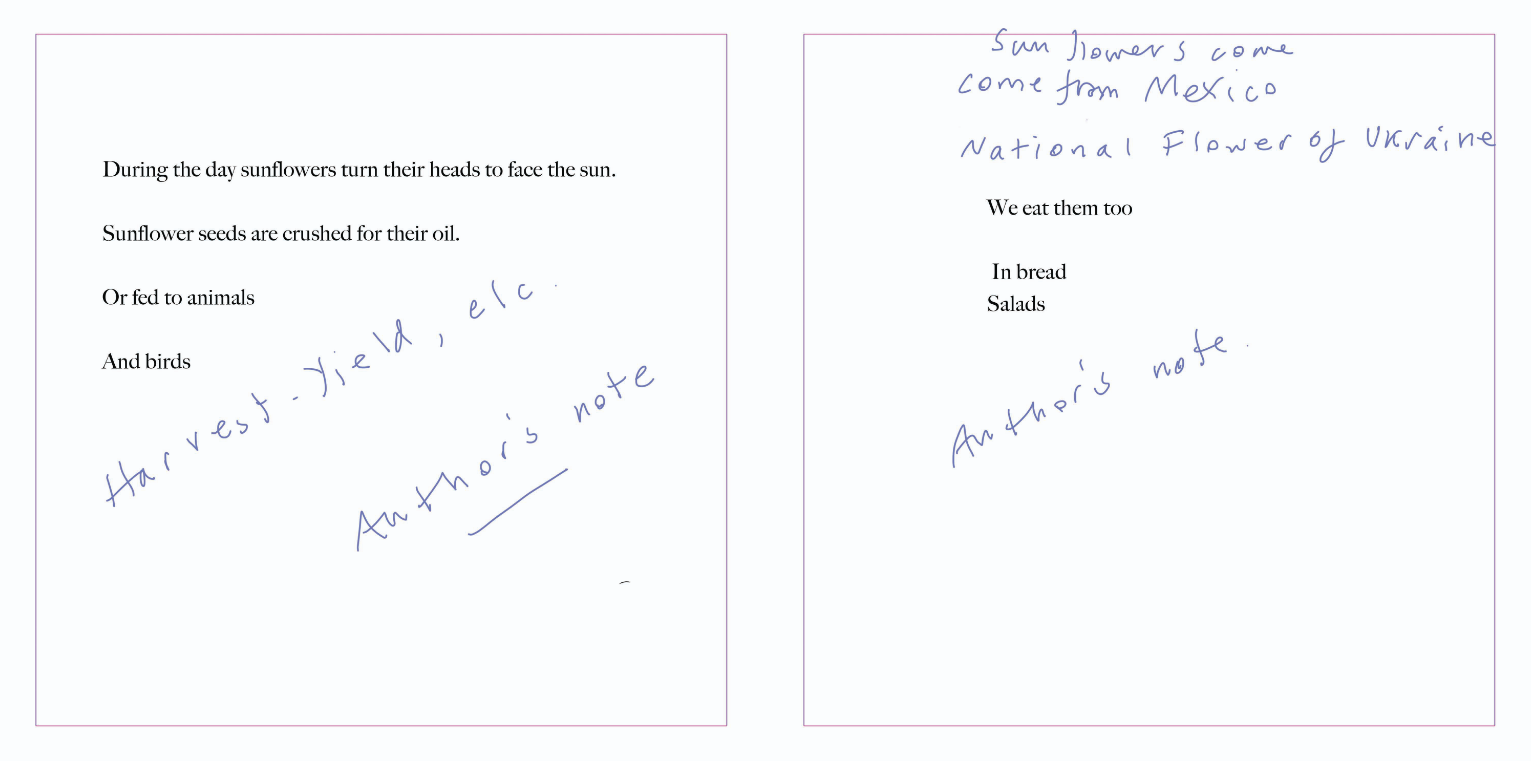 During the day sunflowers turn their heads to face the sun.
Sunflower seeds are crushed for their oil.
Or fed to animals
And birds
Harvest - Yield, etc.
Author's note
Sunflowers come
come from Mexico
National Flower of Ukraine
We eat them too
In bread
Salads
Author's note.